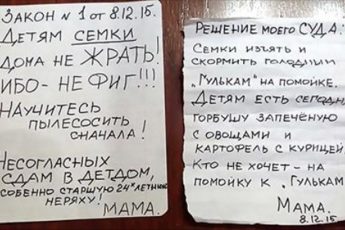 ЗАКОН № 1 от 8.12.15.
Детям СЕМКИ
ДОМА НЕ ЖРАТЬ!
ИБО - НЕ ФИГ!!!
НАУЧИТЕСЬ
ПЫЛЕСОСИТЬ
СНАЧАЛА!
НЕСОГЛАСНЫХ
СДАМ В ДЕТДОМ,
ОСОБЕННО СТАРШУЮ 24х ЛЕТНЮЮ
НЕРЯХУ!
МАМА.
РЕШЕНИЕ МОЕГО СУДА:
СЕМКИ ИЗЪЯТЬ И
СКОРМИТЬ ГОЛОДНЫМ
„ГУЛЬКАМ" НА ПОМОЙКЕ.
ДЕТЯМ ЕСТЬ СЕГОДНЯ
ГОРБУШУ ЗАПЕЧЁНУЮ
С ОВОЩАМИ И
КАРТОФЕЛЬ С КУРИЦЕЙ
КТО НЕ ХОЧЕТ - НА
ПОМОЙКУ К „ГУЛЬКАМ
МАМА.
8.12.15.